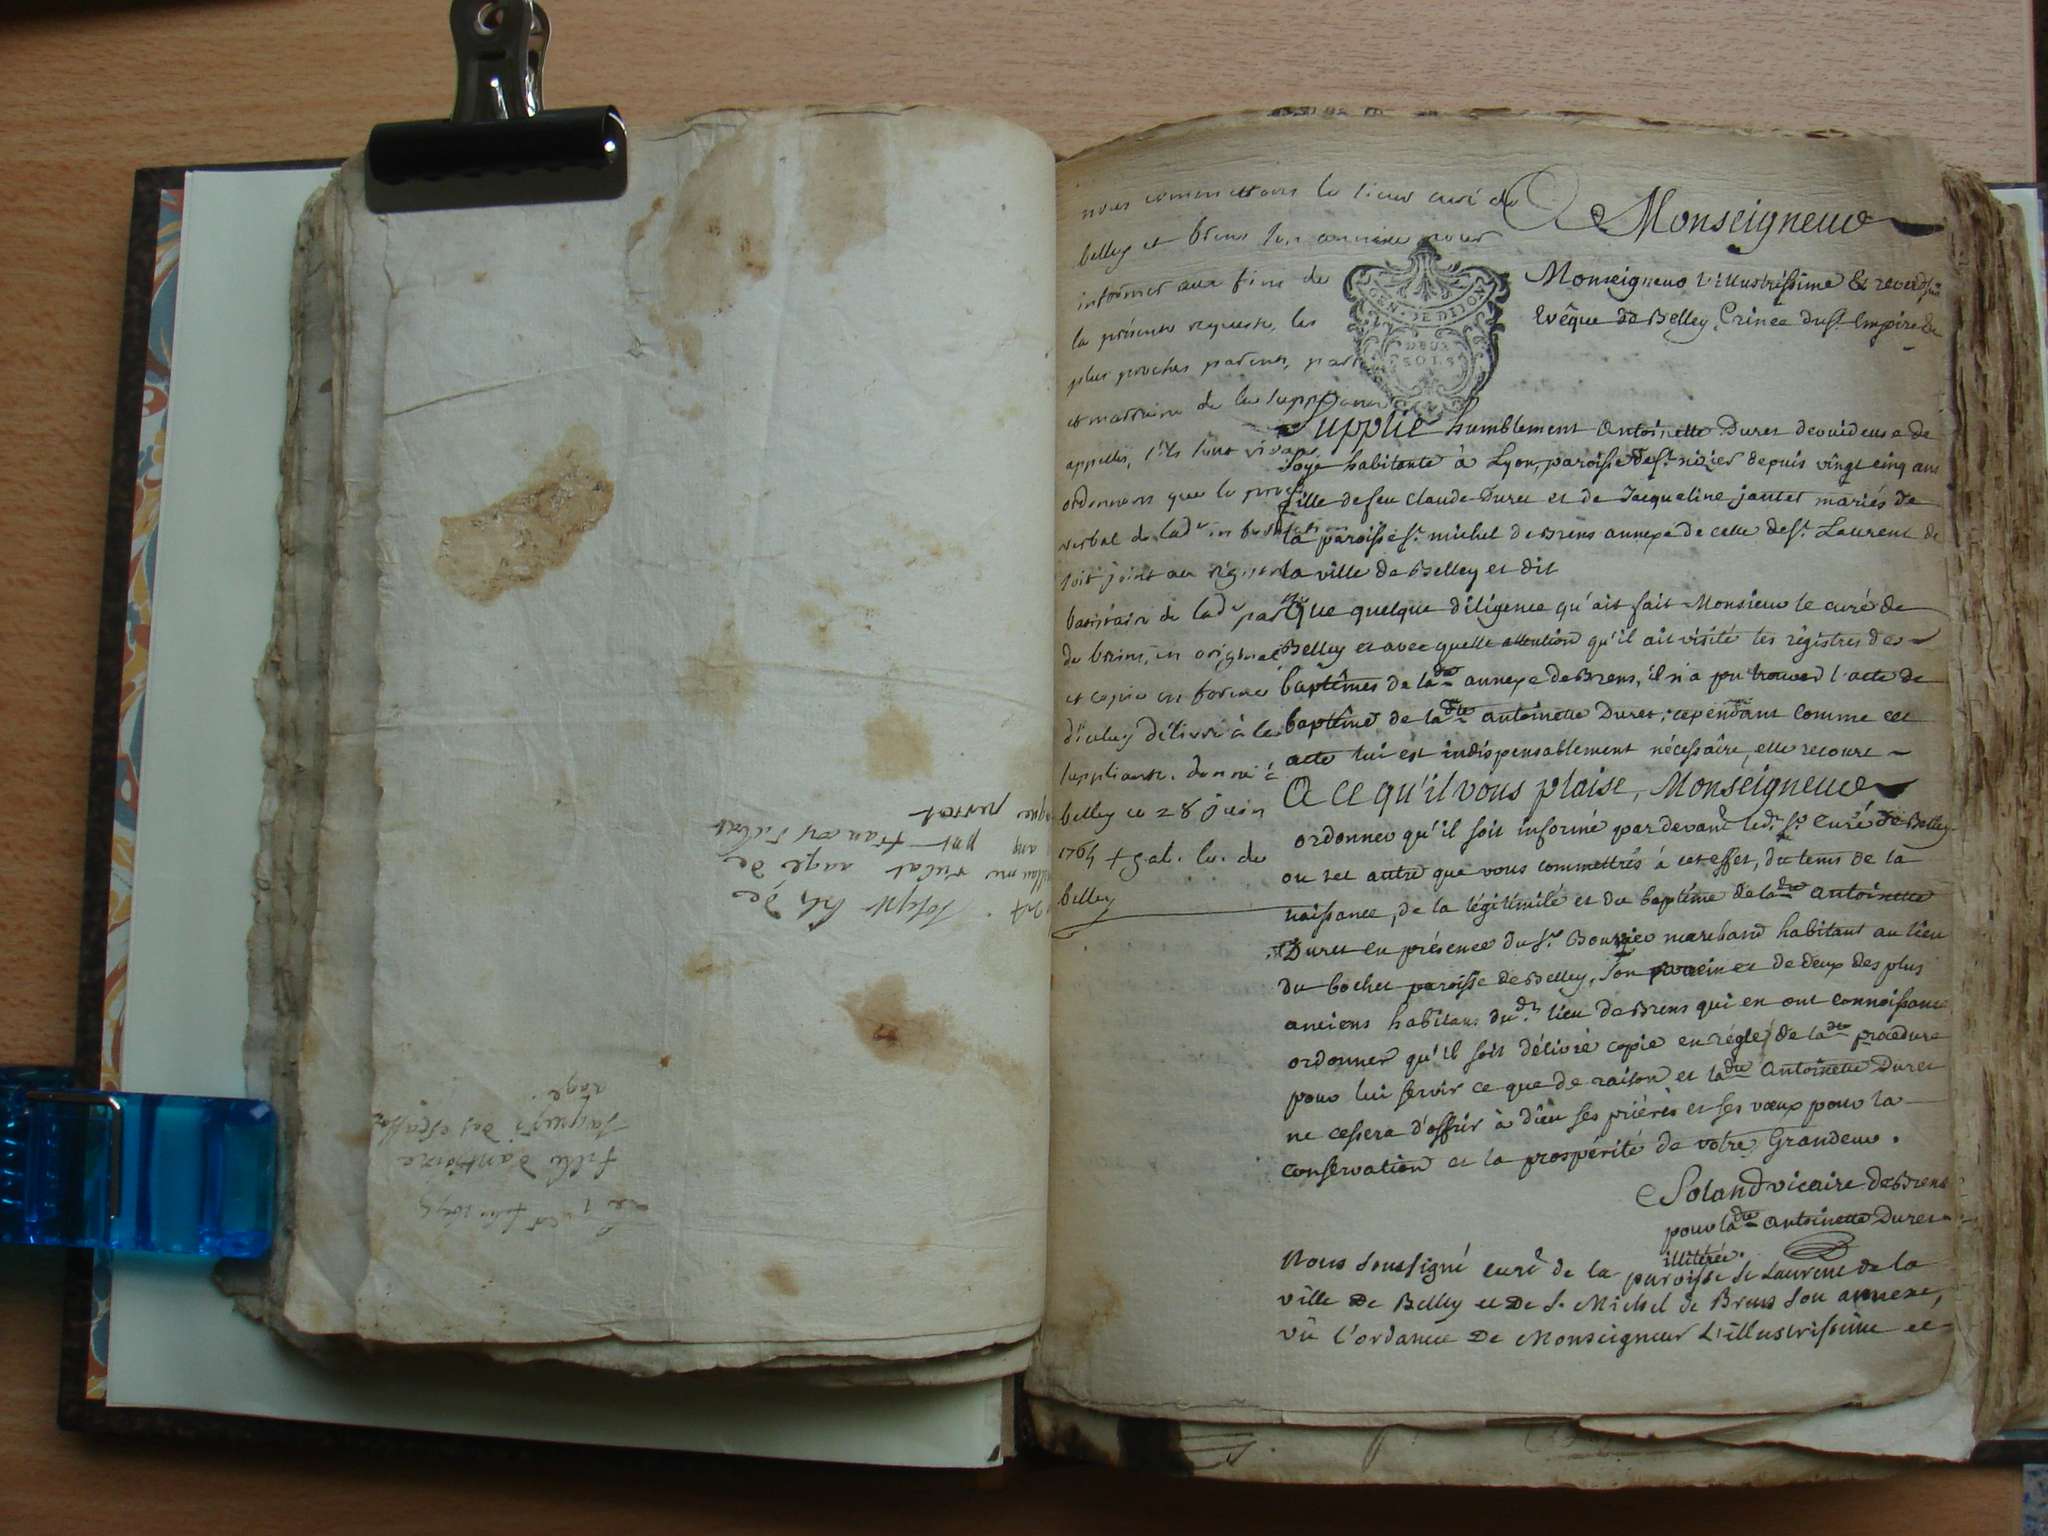 nous commettons le sieur curé de
belley et brens son annexe pour
informer aux fins de
la présente requeste, les
plus proches parens, par
et marraine de la suppliante
appellés, s'ils sont vivans
ordonnons que le procés
verbal de lad.e information
soit joint au régistre
batistaire de lad.e par.sse
de brens, en original
et copie en forme
d'iceluy délivré à la
suppliante. donné à
belley ce 28 juin
1764 + gab. ev. de
belley
A Monseigneur
GEN. DE DIJON
DEUX
SOLS
Monseigneur l'illustrissime & reverd.sime
Evêque de Belley, Prince du St. Empire &c
Supplie humblement Antoinette Duret devuideuse de
soye habitante à Lyon, paroisse de St. nizier depuis vingt cinq ans
fille de feu Claude Duret et de Jacqueline jantet mariés de
la paroisse St. michel de Brens annexe de celle de St. Laurent de
la ville de Belley et dit
Que quelque diligence qu'ait fait Monsieur le curé de
Belley et avec quelle attention qu'il ait visité les régistres des
baptêmes de lad.te annexe de Brens, il n'a pu trouver l'acte de
baptême de lad.te Antoinette Duret; cependant comme cet
acte lui est indispensablement nécessaire, elle recourt
A ce qu'il vous plaise, Monseigneur
ordonner qu'il soit informé pardevant led.t Sr. Curé de Belley
ou tel autre que vous commettrés à cet effet, du tems de la
naissance, de la légitimité et du baptême de lad.te Antoinette
Duret en présence du Sr. Bourgie marchand habitant au lieu
du bochet paroisse de Belley, son parein et de deux des plus
anciens habitans dud.t lieu de Brens qui en ont connoissance
ordonner qu'il soit délivré copie en régle de lad.te procedure
pour lui servir ce que de raison et lad.te Antoinette Duret
ne cessera d'offrir à dieu ses priéres et ses vœux pour la
conservation et la prospérité de votre Grandeur.
Soland vicaire de Brens
pour lad.te Antoinette Duret
illitérée.
Nous soussigné curé de la paroisse St Laurent de la
ville de Belley et de S. Michel de Brens son annexe,
vû l'ordance de Monseigneur L'illustrissime et
Joseph fils de
rage de
par francois
perret
fille d'anthoine
rage.